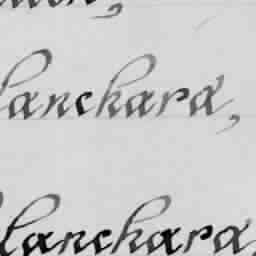 lanchara,
lanchara,